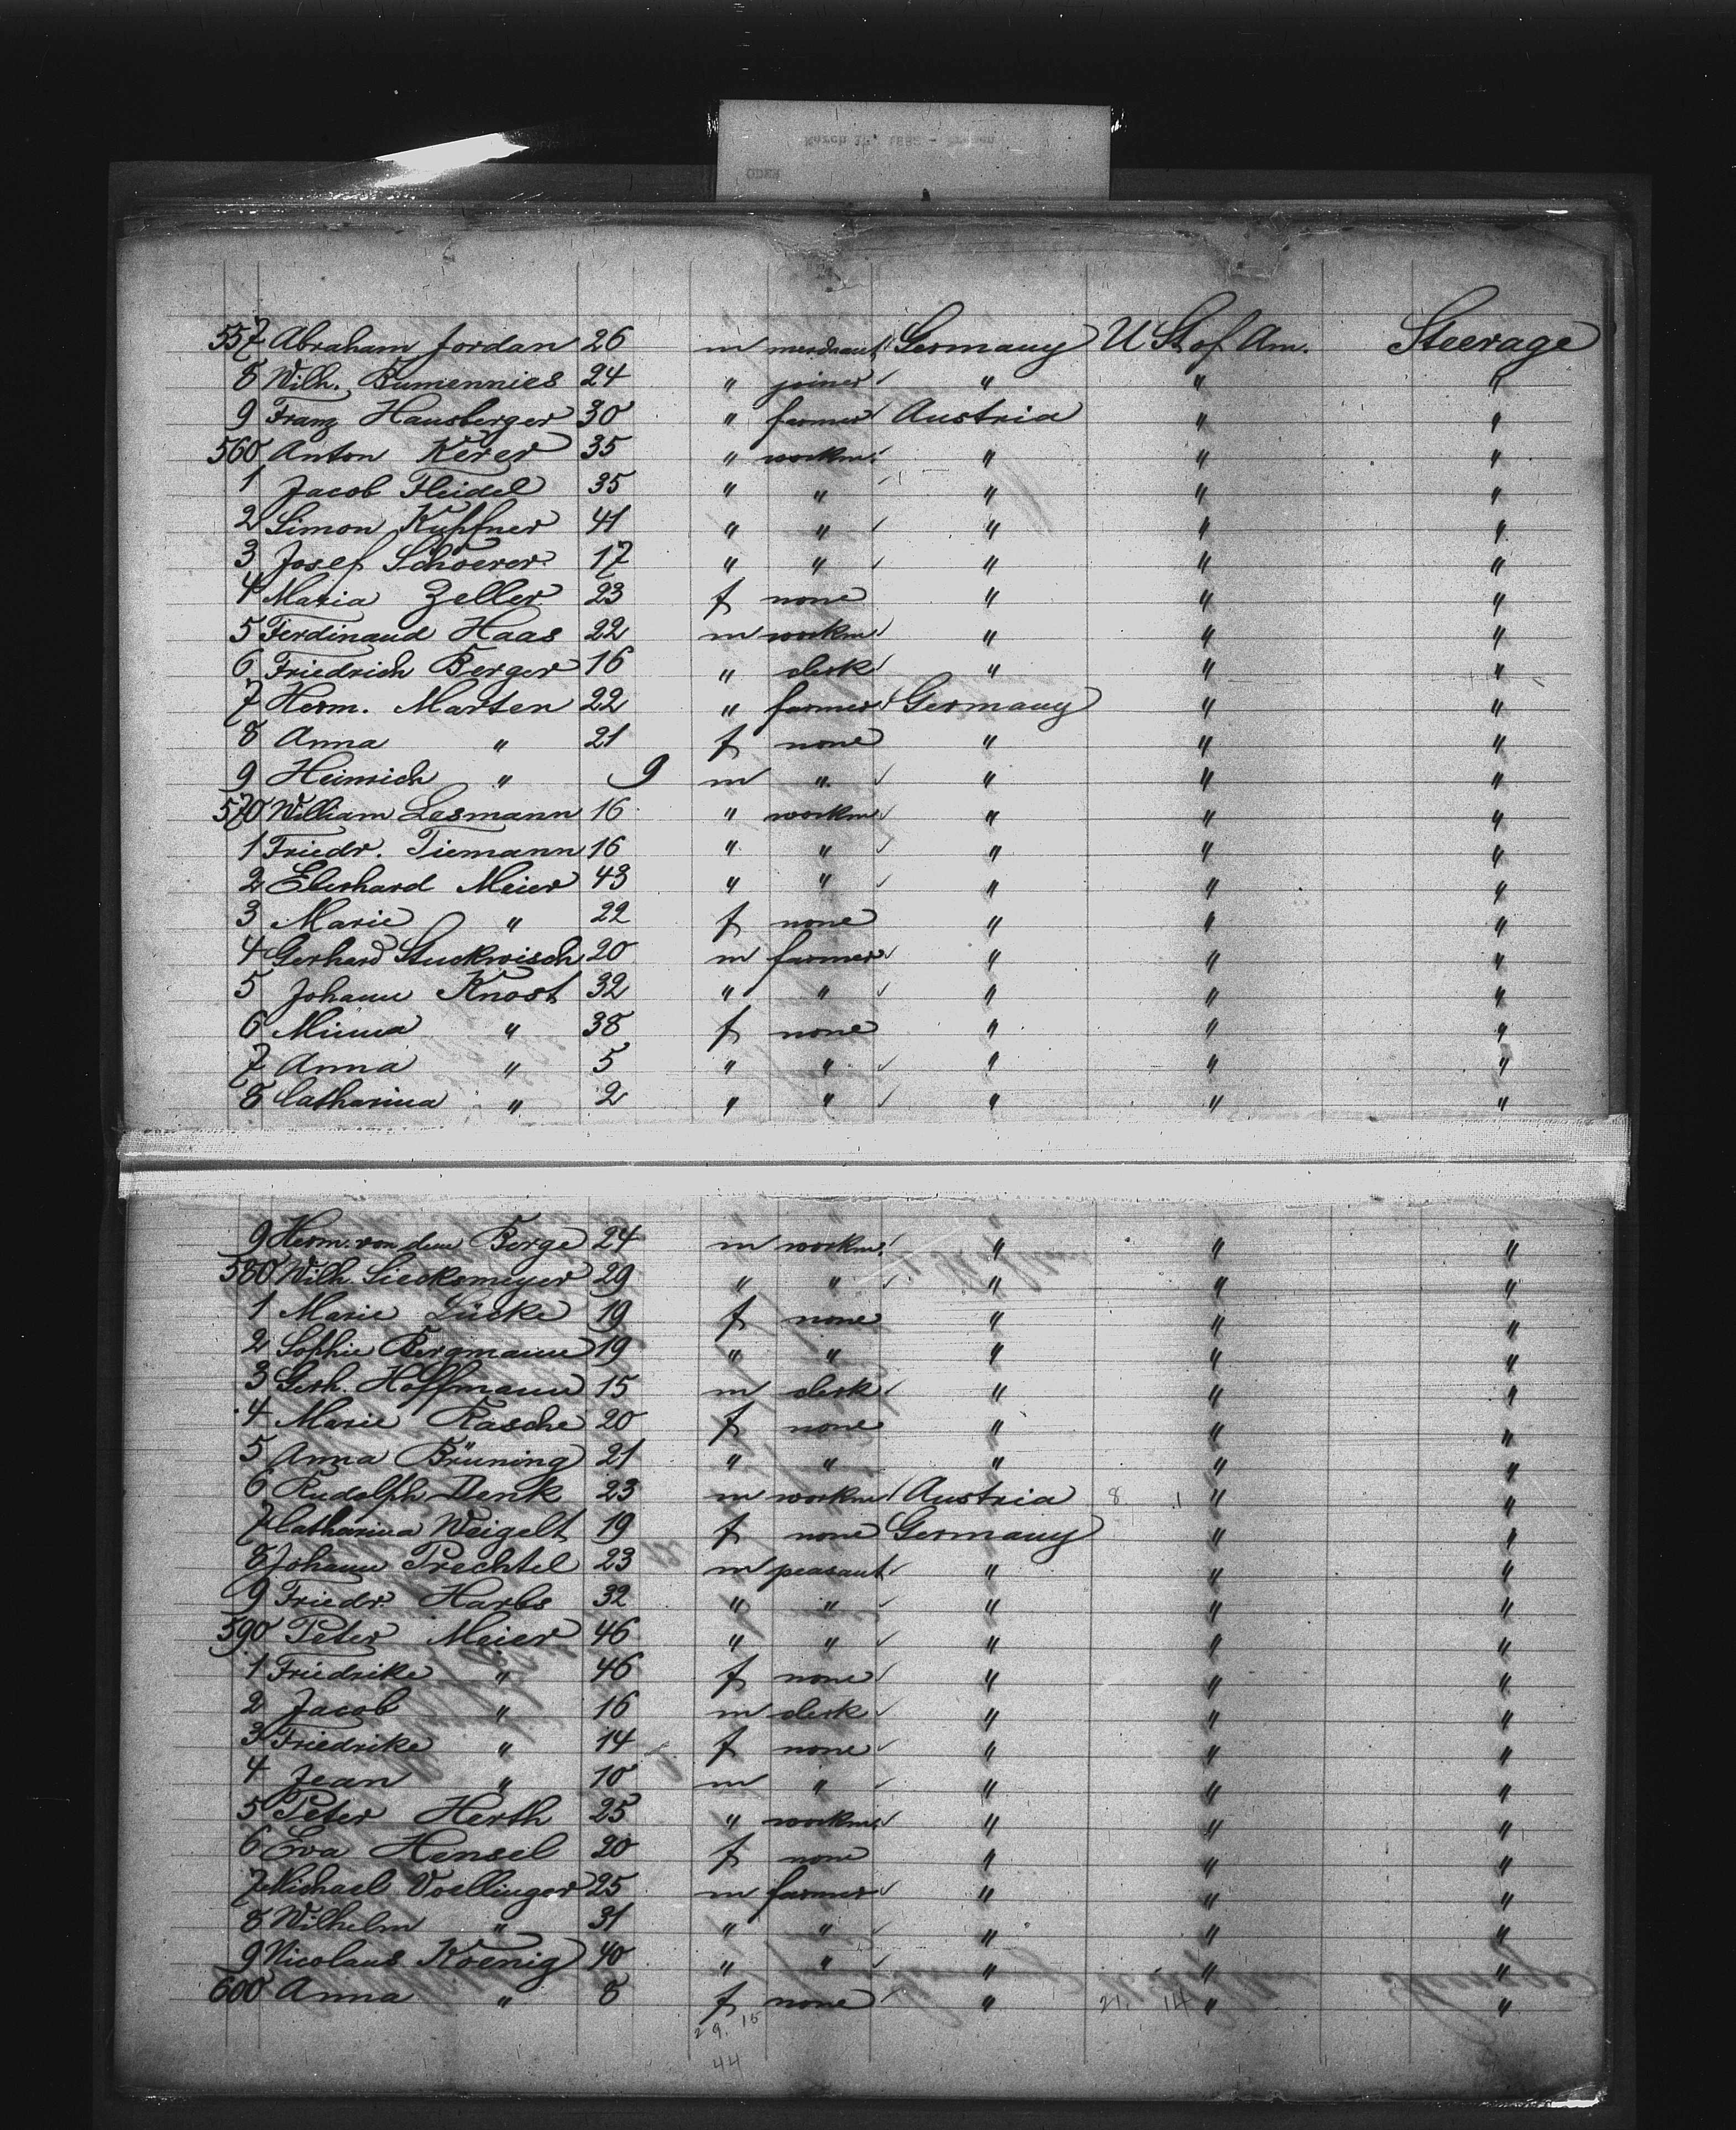 557 Abraham Jordan 26 m merchant Germany U St of Am. Steerage
8 Wilh. Bumennies 24 " joiner " " "
9 Franz Hausberger 30 " farmer Austria " "
560 Anton Kerer 35 " workm. " " "
1 Jacob Fleidel 35 " " " " "
2 Simon Kupfner 41 " " " " "
3 Josef Schoerer 17 " " " " "
4 Maria Zeller 23 f none " " "
5 Ferdinand Haas 22 m workm " " "
6 Friedrich Berger 16 " clerk " " "
7 Herm. Marten 22 " farmer Germany " "
8 Anna " 21 f none " " "
9 Heinrich " 9 m " " " "
570 William Lesmann 16 " workm " " "
1 Friedr. Tiemann 16 " " " " "
2 Eberhard Meier 43 " " " " "
3 Marie " 22 f none " " "
4 Gerhard Stuckwisch 20 m farmer " " "
5 Johann Knost 32 " " " " "
6 Minna " 38 f none " " "
7 Anna " 5 " " " " "
8 Catharina " 2 " " " " "
9 Herm. von dem Berge 24 m workm. " " "
580 Wilh. Siecksmeyer 29 " " " " "
1 Marie Lücke 19 f none " " "
2 Sophie Bergmann 19 " " " " "
3 Gerh. Hoffmann 15 m clerk " " "
4 Marie Rasche 20 f none " " "
5 Anna Brüning 21 " " " " "
6 Rudolph Denk 23 m workm Austria 8 1 " "
7 Catharina Weigelt 19 f none Germany " "
8 Johann Prechtel 23 m peasant " " "
9 Friedr. Harbs 32 " " " " "
590 Peter Meier 46 " " " " "
1 Friedrike " 46 f none " " "
2 Jacob " 16 m clerk " " "
3 Friedrike " 14 f none " " "
4 Jean " 10 m " " " "
5 Peter Herth 25 " workm. " " "
6 Eva Hensel 20 f none " " "
7 Michael Voellinger 25 m farmer " " "
8 Wilhelm " 31 " " " " "
9 Nicolaus Koenig 40 " " " " "
600 Anna " 8 f none " 21. 14 " "
29. 15
44